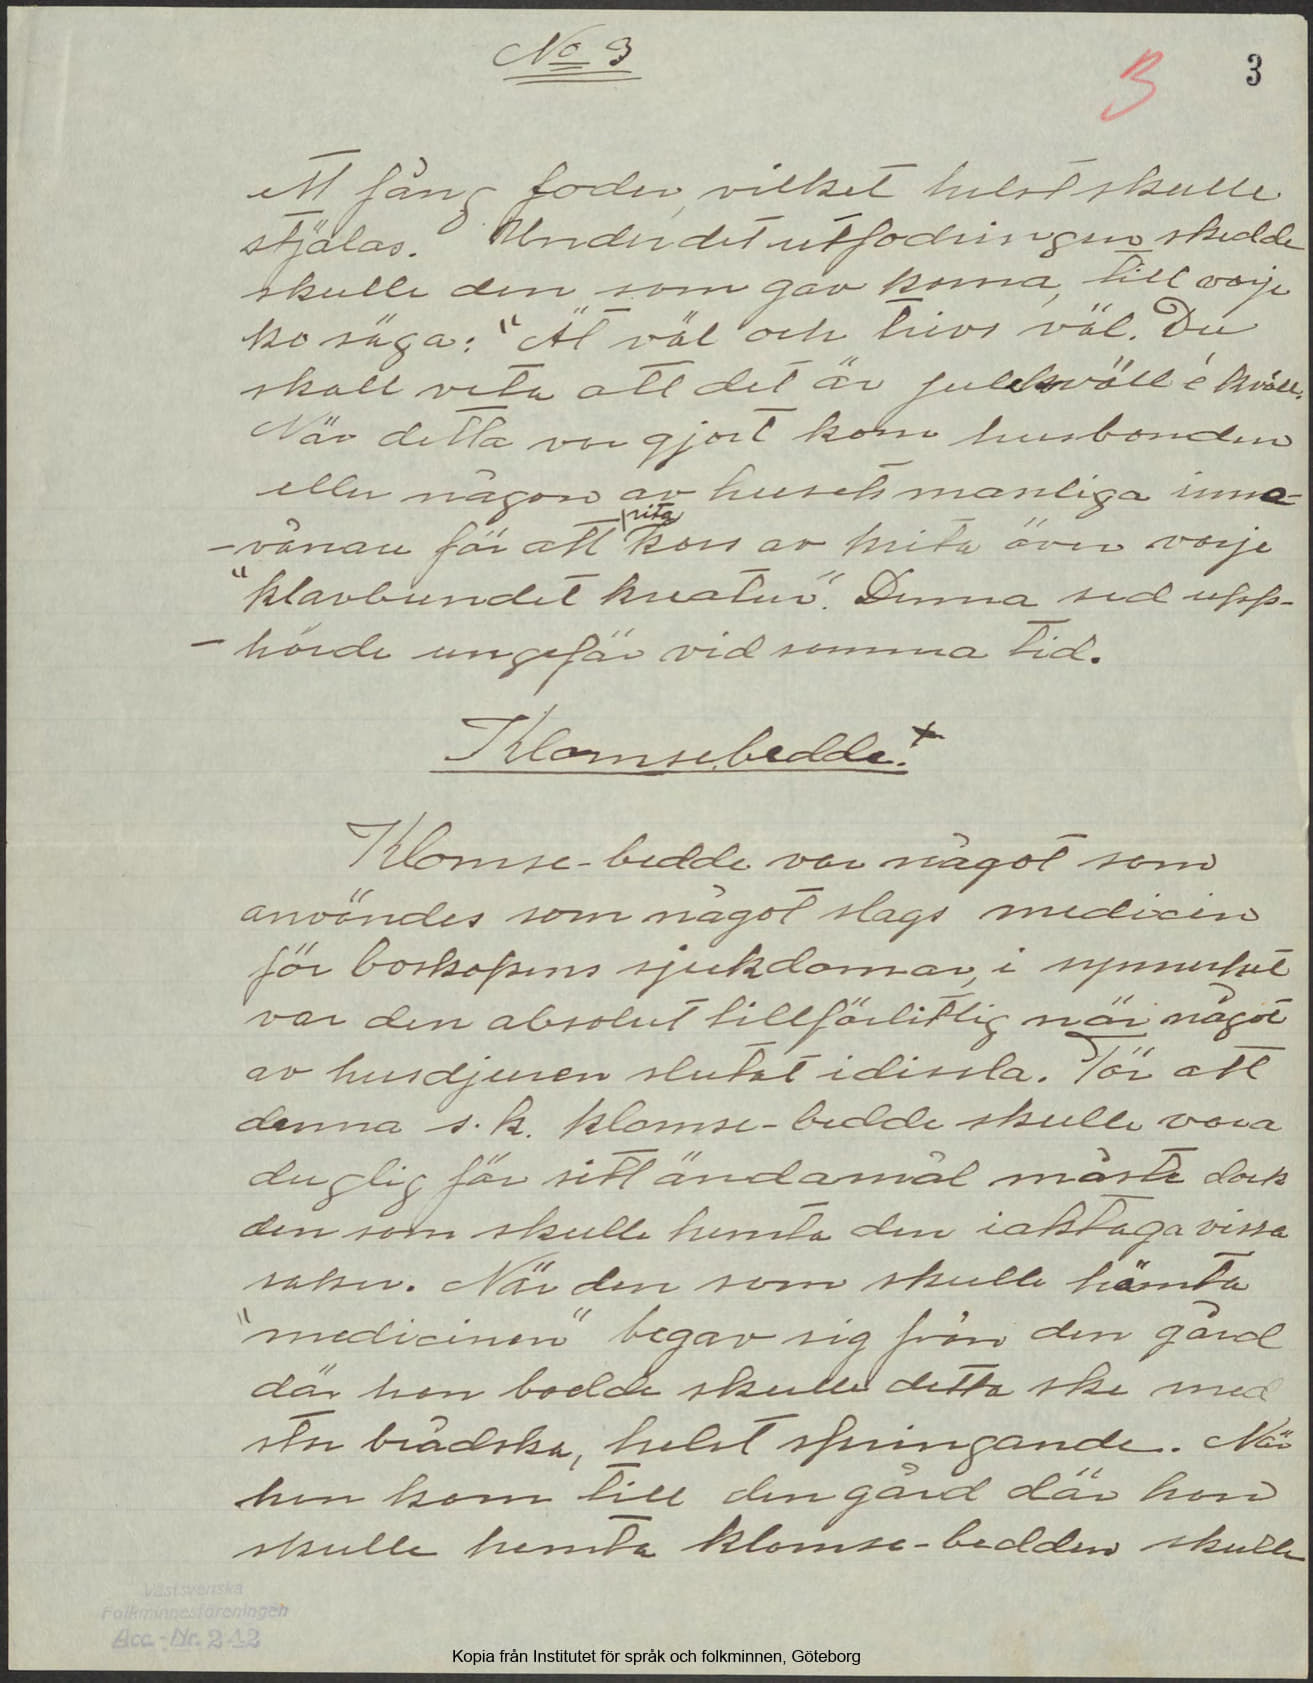 No 3
3
3
ett fång foder, vilket helst skulle
stjälas. Under det utfodringen skedde
skulle den som gav korna, till varje
ko säga: "Ät väl och trivs väl. Du
skall veta att det är julekväll é kväll.
När detta var gjort kom husbonden
eller någon av husets manliga inne-
-vånare för att rita kors av krita över varje
"klavbundet kreatur". Denna sed upp-
-hörde ungefär vid samma tid.
Klomsebedde. x
Klomse-bedde var något som
användes som något slags medicin
för boskapens sjukdomar, i synnerhet
var den absolut tillförlitlig när något
av husdjuren slutat idissla. För att
denna s.k. klomse-bedde skulle vara
duglig för sitt ändamål måste dock
den som skulle hemta den iakttaga vissa
saker. När den som skulle hämta
"medicinen" begav sig från den gård
där han bodde skulle detta ske med
stor brådska, helst springande. När
han kom till den gård där han
skulle hemta klomse-bedden skulle
Västsvenska
Folkminnesföreningen
Acc.-Nr. 242
Kopia från Institutet för språk och folkminnen, Göteborg